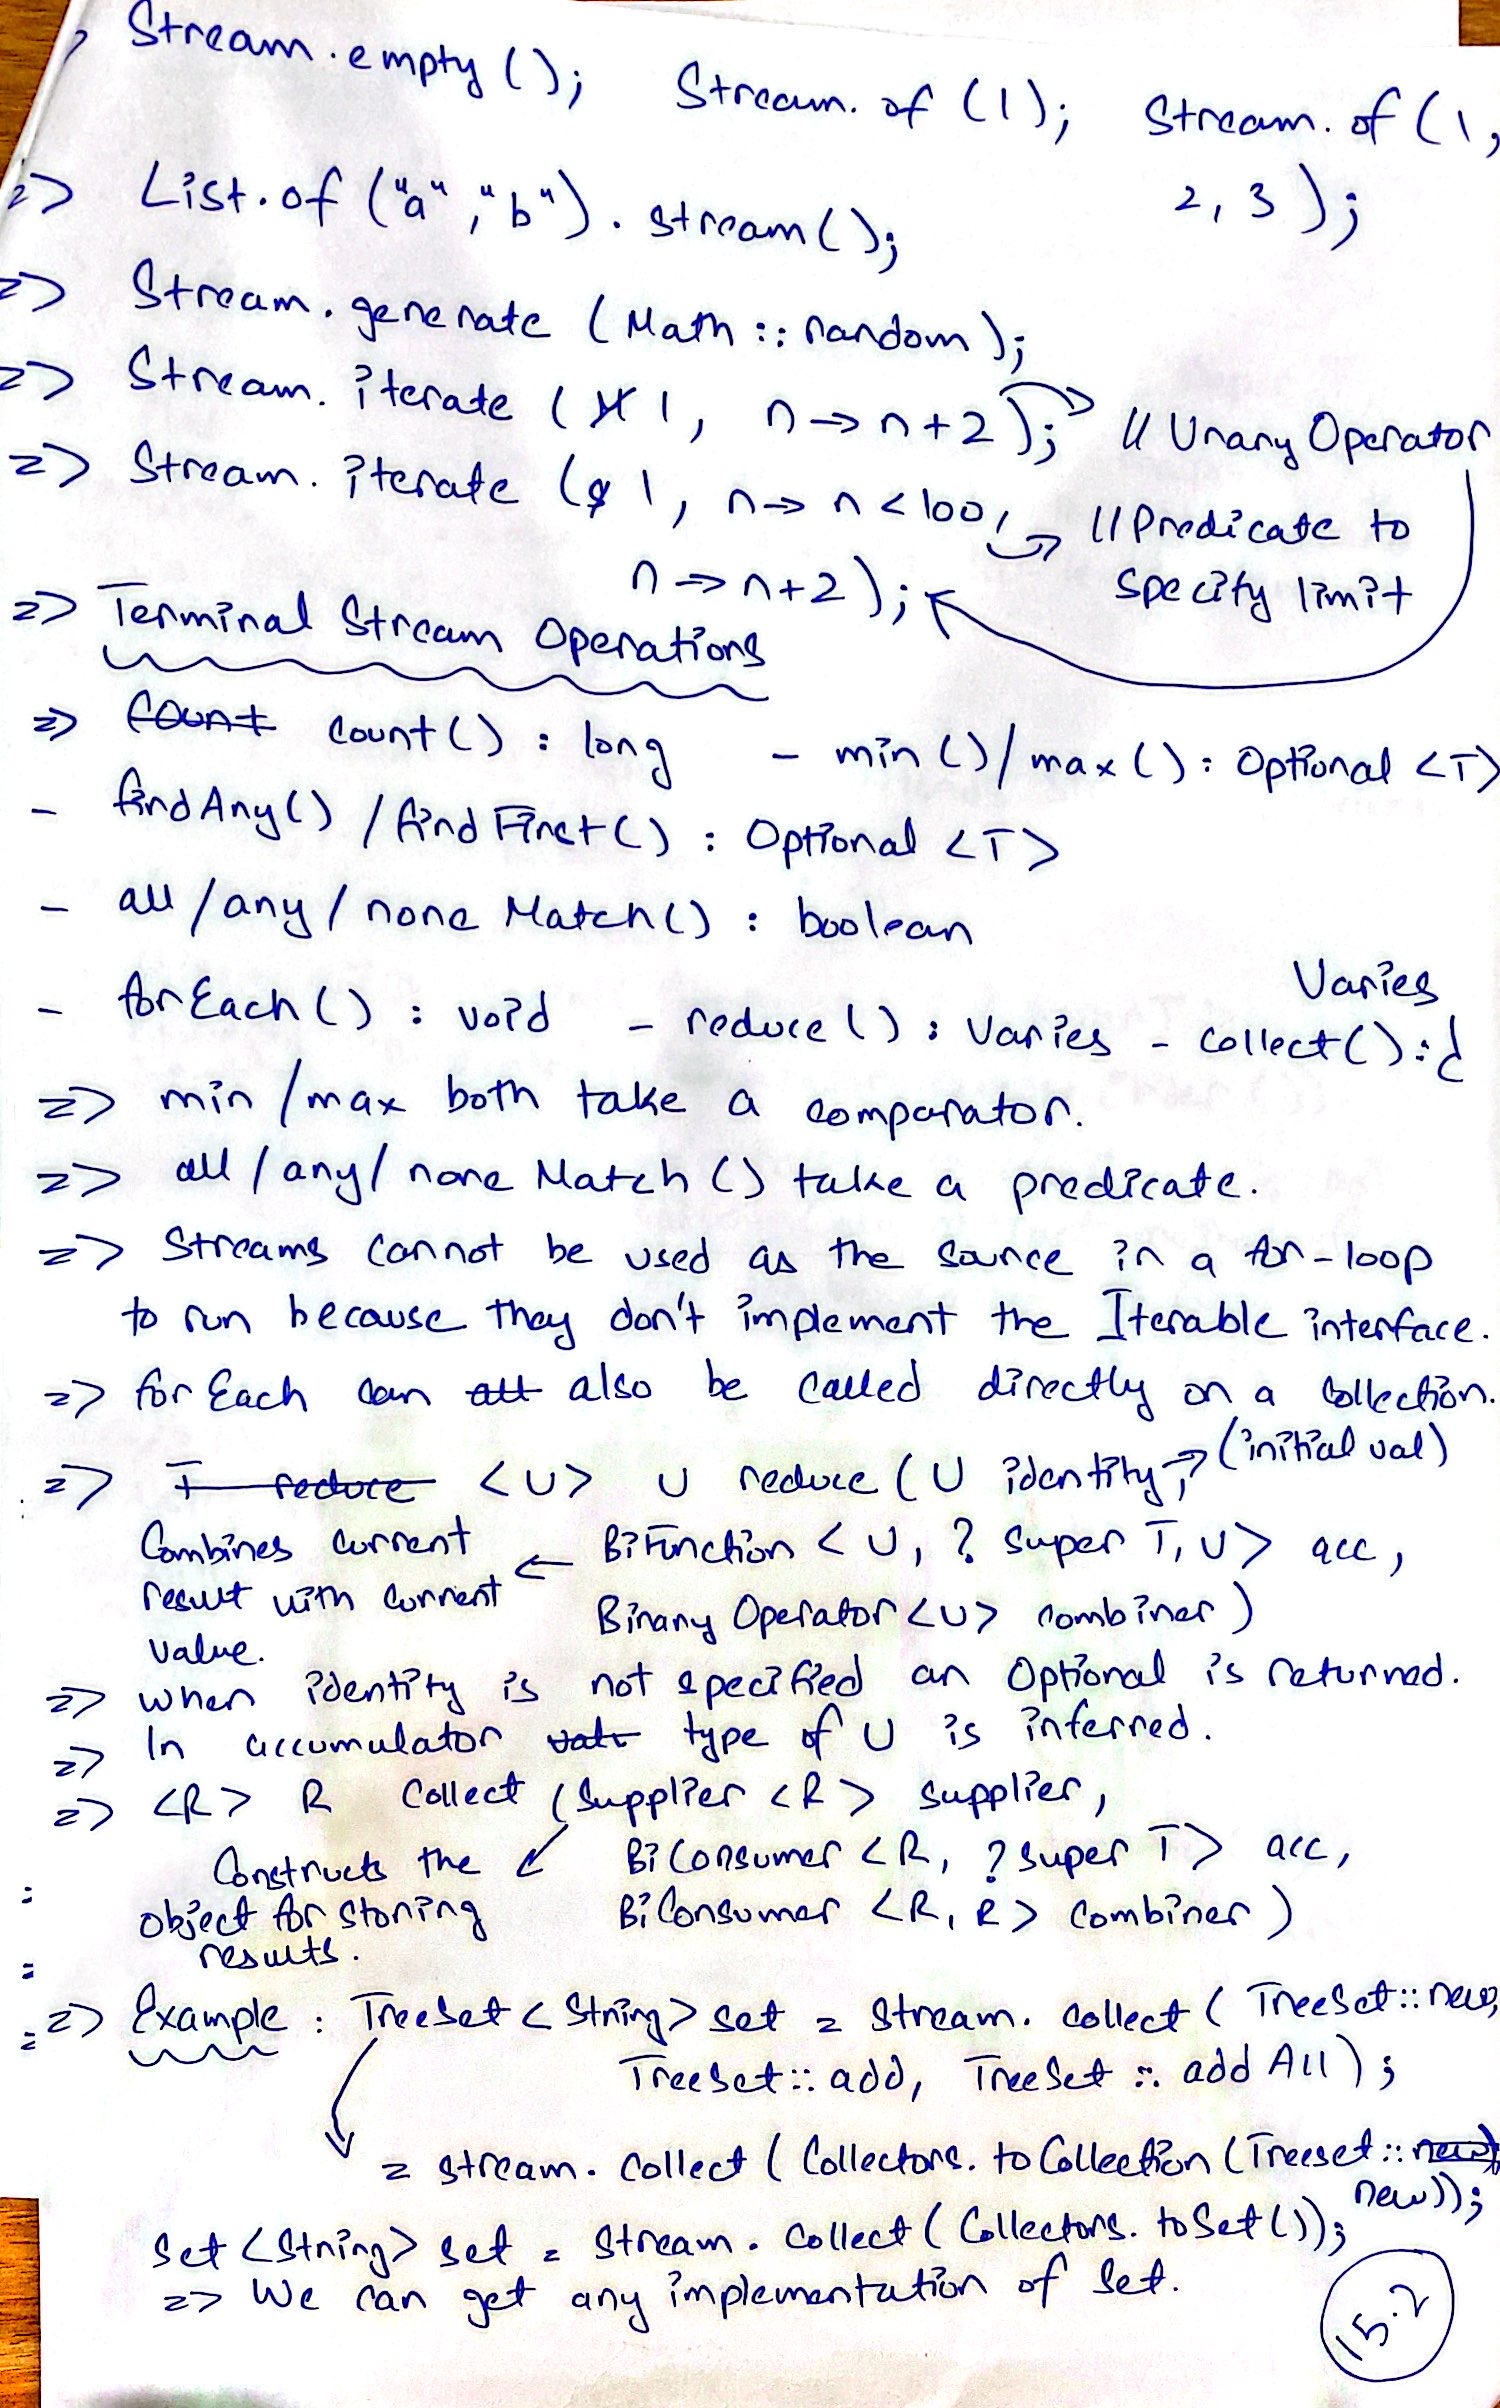 Stream.empty(); Stream.of(1); Stream.of(1,
2, 3);
=> List.of("a", "b").stream();
=> Stream.generate(Math::random);
=> Stream.iterate(1, n -> n+2); // Unary Operator
=> Stream.iterate(1, n -> n < 100, // Predicate to
specify limit
n -> n+2);
=> Terminal Stream Operations
=> count count() : long - min()/max() : Optional <T>
- findAny() / findFirst() : Optional <T>
- all/any/none Match() : boolean
Varies
- forEach() : void - reduce() : Varies - collect() :
=> min/max both take a comparator.
=> all/any/none Match() take a predicate.
=> Streams cannot be used as the source in a for-loop
to run because they don't implement the Iterable interface.
=> forEach can all also be called directly on a collection.
=> T reduce <U> U reduce (U identity, -> (initial val)
Combines current <- BiFunction <U, ? super T, U> acc,
result with current Binary Operator <U> combiner)
value.
=> when identity is not specified an Optional is returned.
=> In accumulator type of U is inferred.
=> <R> R collect (Supplier <R> supplier,
Constructs the BiConsumer <R, ? super T> acc,
object for storing BiConsumer <R, R> combiner)
results.
=> Example : TreeSet <String> set = stream.collect(TreeSet::new,
TreeSet::add, TreeSet::addAll);
= stream.collect(Collectors.toCollection(Treeset::new)
new));
Set <String> set = stream.collect(Collectors.toSet());
=> We can get any implementation of Set.
15.2